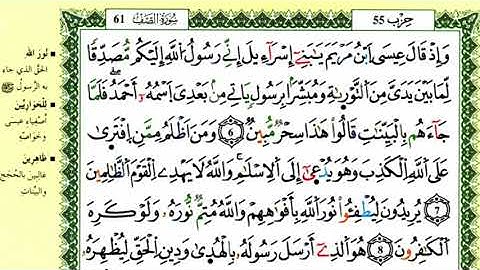 حِزْب 55
سُورَةُ الصَّفِّ 61
وَإِذْ قَالَ عِيسَى اَبْنُ مَرْيَمَ يَٰبَنِےٓ إِسْرَآءِيلَ إِنِّے رَسُولُ اُللَّهِ إِلَيْكُم مُّصَدِّقاً
لِّمَا بَيْنَ يَدَيَّ مِنَ اَلتَّوْر۪ىٰةِ وَمُبَشِّراَۢ بِرَسُولٖ يَاتِے مِنۢ بَعْدِيَ اَسْمُهُۥٓ أَحْمَدُۖ فَلَمَّا
جَآءَهُم بِالْبَيِّنَٰتِ قَالُواْ هَٰذَا سِحْرٞ مُّبِينٞ 6 وَمَنَ اَظْلَمُ مِمَّنِ اِفْتَرَىٰ
عَلَى اَللَّهِ اِلْكَذِبَ وَهُوَ يُدْعَىٰٓ إِلَى اَلِاسْلَٰمِ وَاللَّهُ لَا يَهْدِے اِلْقَوْمَ اَلظَّٰلِمِينَ
7 يُرِيدُونَ لِيُطْفِـُٔواْ نُورَ اَللَّهِ بِأَفْوَٰهِهِمْ وَاللَّهُ مُتِمّٞ نُورَهُۥ وَلَوْ كَرِهَ
اَلْكَٰفِرُونَ 8 هُوَ اَلذِےٓ أَرْسَلَ رَسُولَهُۥ بِالْهُدَىٰ وَدِينِ اِلْحَقِّ لِيُظْهِرَهُۥ
نُورَ اللهِ
الحق الذي جاء
به الرسول ﷺ
لِلْحَوَارِيِّينَ
أصفياء عيسى
وخواصّه
ظَاهِرِينَ
غالبين بالحُجَج
والبيّنات